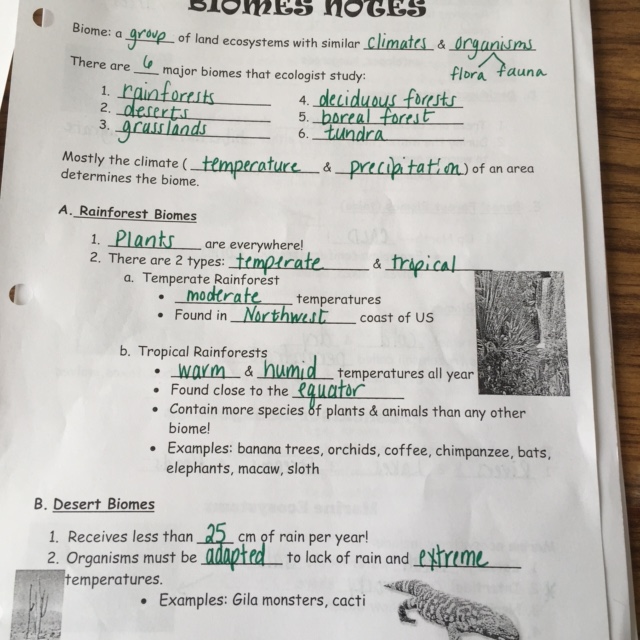 BIOMES NOTES
Biome: a group of land ecosystems with similar climates & organisms
flora fauna
There are 6 major biomes that ecologist study:
1. rainforests
2. deserts
3. grasslands
4. deciduous forests
5. boreal forest
6. tundra
Mostly the climate ( temperature & precipitation ) of an area
determines the biome.
A. Rainforest Biomes
1. Plants are everywhere!
2. There are 2 types: temperate & tropical
a. Temperate Rainforest
• moderate temperatures
• Found in Northwest coast of US
b. Tropical Rainforests
• warm & humid temperatures all year
• Found close to the equator
• Contain more species of plants & animals than any other
biome!
• Examples: banana trees, orchids, coffee, chimpanzee, bats,
elephants, macaw, sloth
B. Desert Biomes
1. Receives less than 25 cm of rain per year!
2. Organisms must be adapted to lack of rain and extreme
temperatures.
• Examples: Gila monsters, cacti